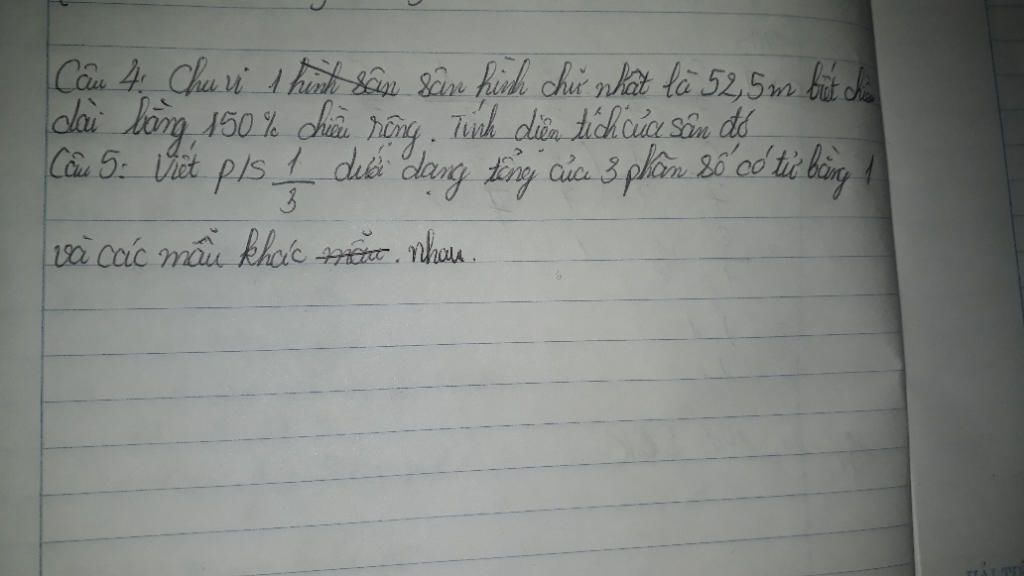 Câu 4: Chu vi 1 hình sân sân hình chữ nhật là 52,5m biết chiều
dài bằng 150% chiều rộng. Tính diện tích của sân đó
Câu 5: Viết p/s 1/3 dưới dạng tổng của 3 phân số có tử bằng 1
và các mẫu khác mẫu. nhau.